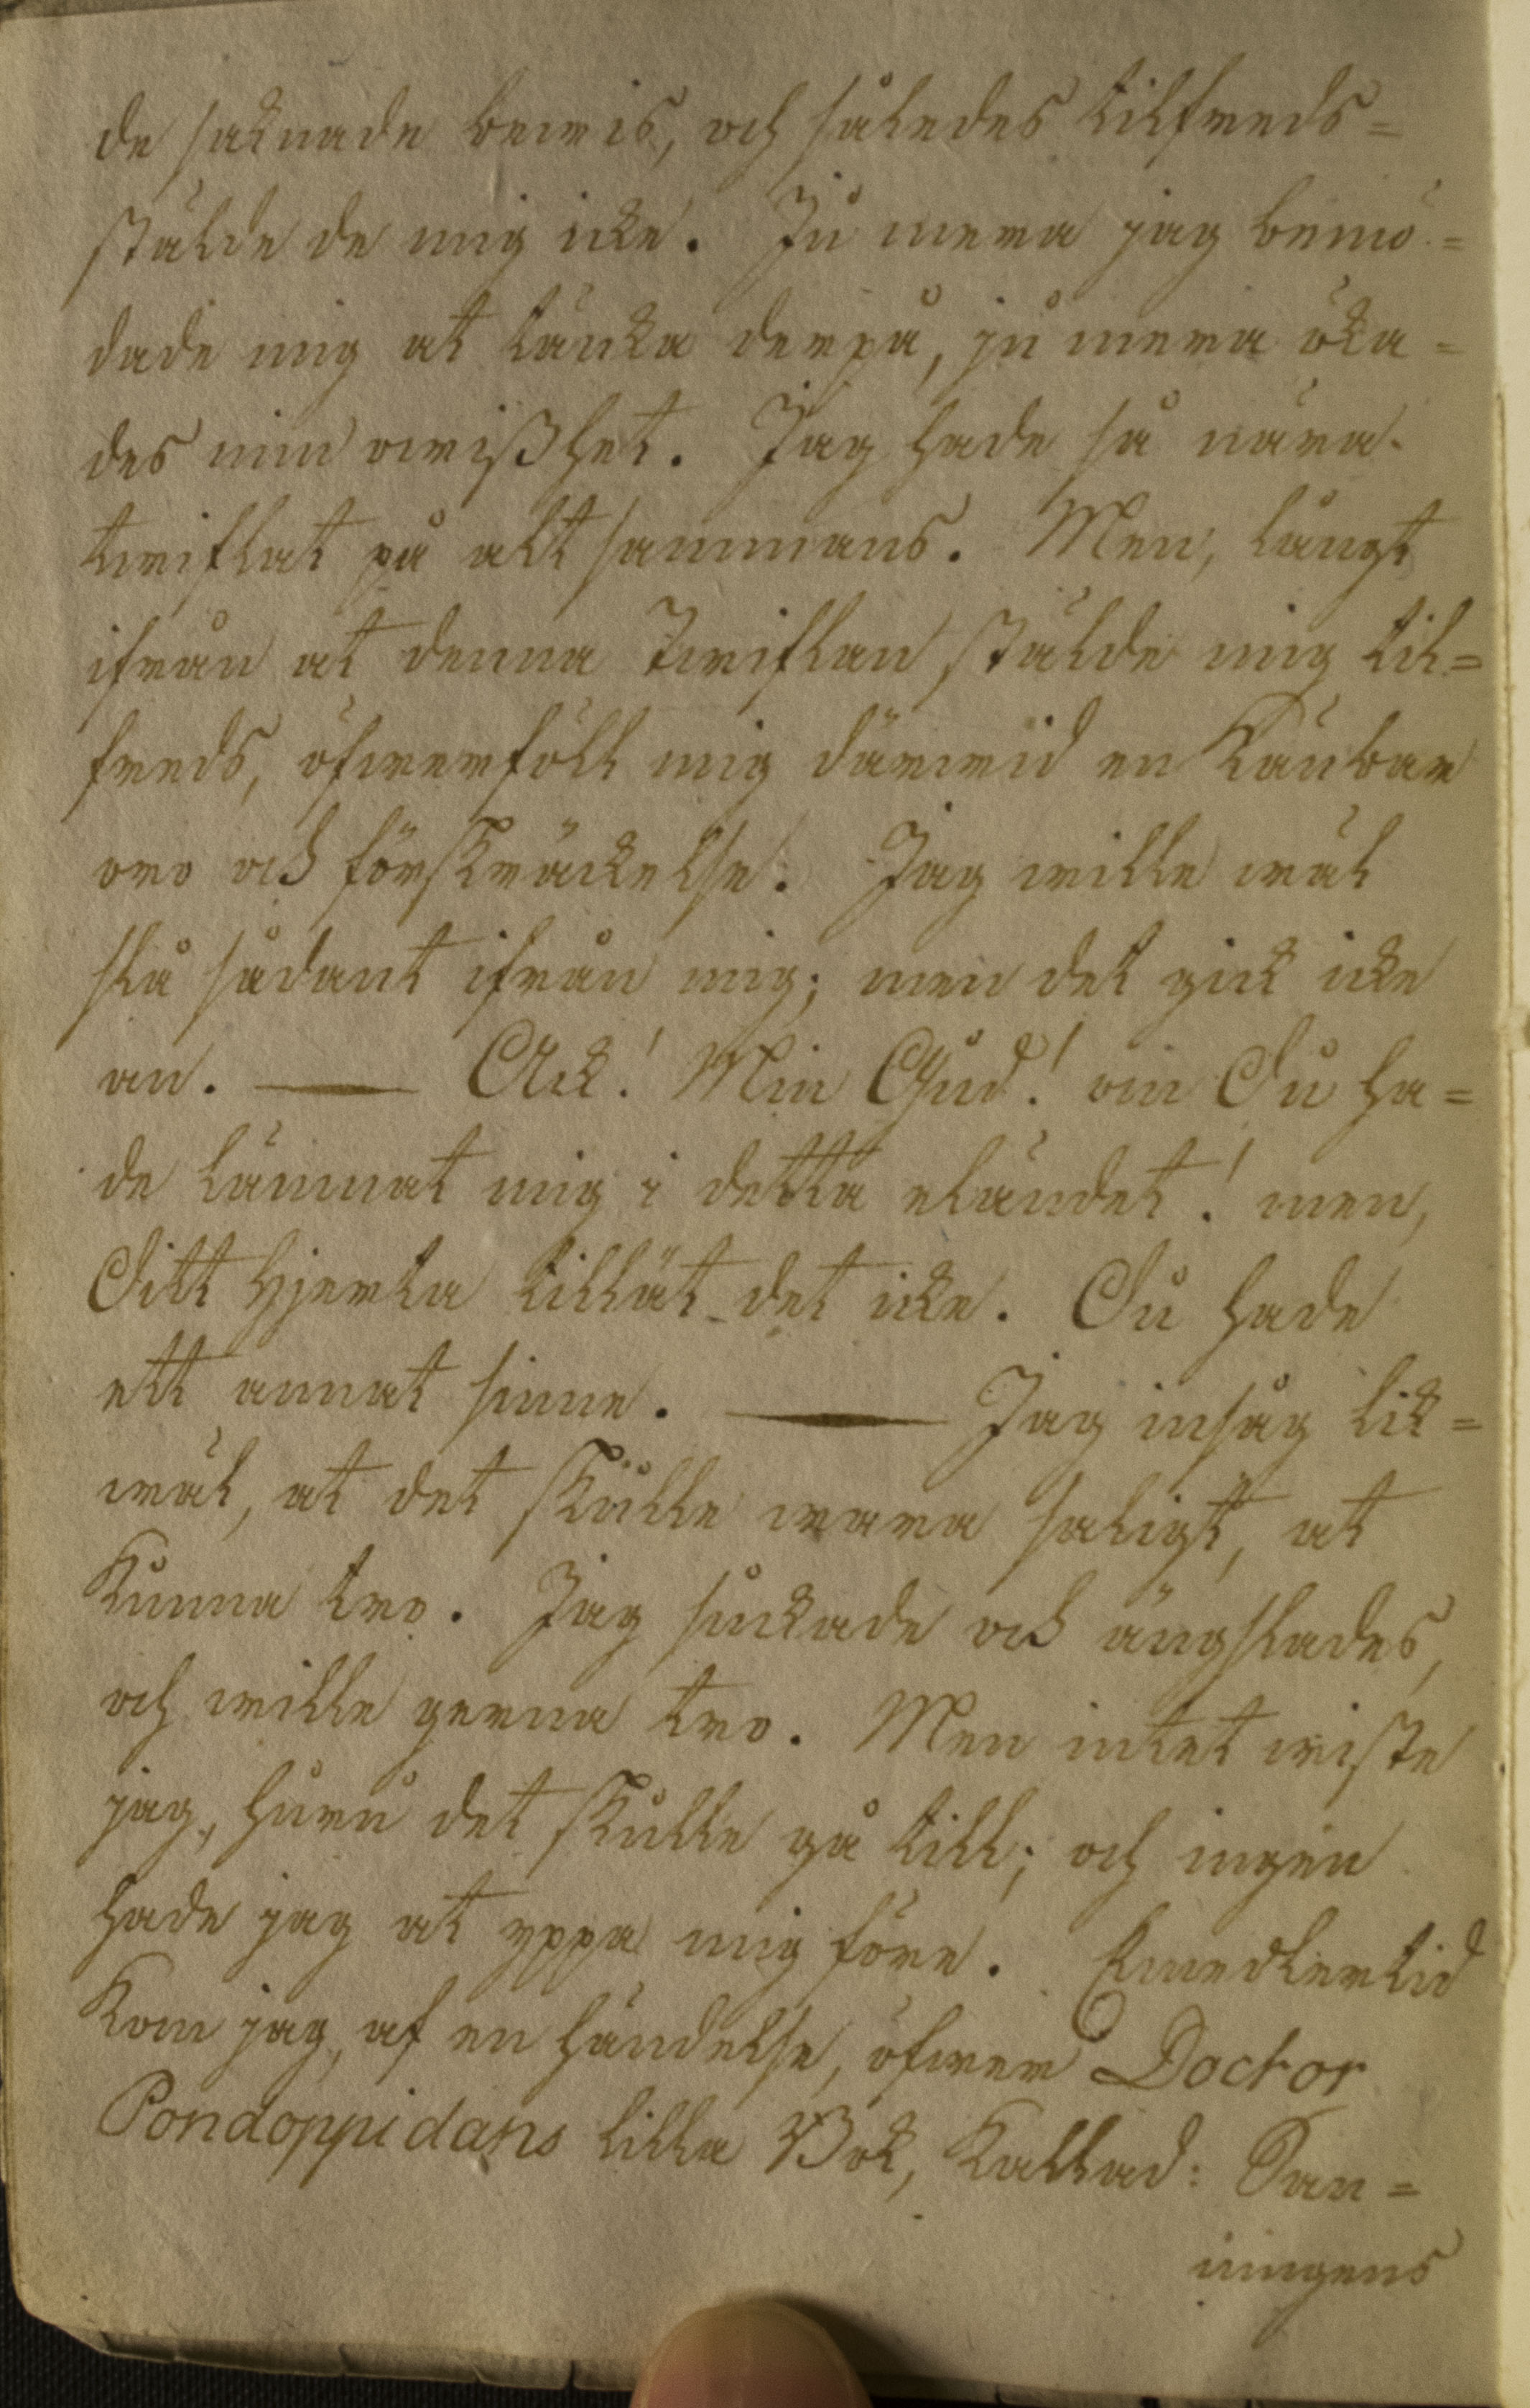 de saknade bewis, och således tilfreds=
stälde de mig icke. Ju mera jag bemö=
dade mig at tänka derpå, ju mera öka=
des min owißhet. Jag hade så nära
twiflat på alt sammans. Men, långt
ifrån at denna Twiflan stälde mig til=
freds, öfwerföll mig därwid en Känbar
oro och förskräckelse. Jag wille wäl
slå sådant ifrån mig; men det gick icke
an. — Ack! Min Gud! om Du ha=
de lämnat mig i detta eländet! men,
Ditt Hjerta tillät det icke. Du hade
ett annat sinne. — Jag insåg lik=
wäl, at det skulle wara saligt, at
Kunna tro. Jag suckade och ängslades,
och wille gerna tro. Men intet wiste
jag, huru det skulle gå till; och ingen
hade jag at yppa mig före. Emedlertid
Kom jag, af en händelse, öfwer Doctor
Pondoppidans lilla Bok, Kallad: San=
ningens